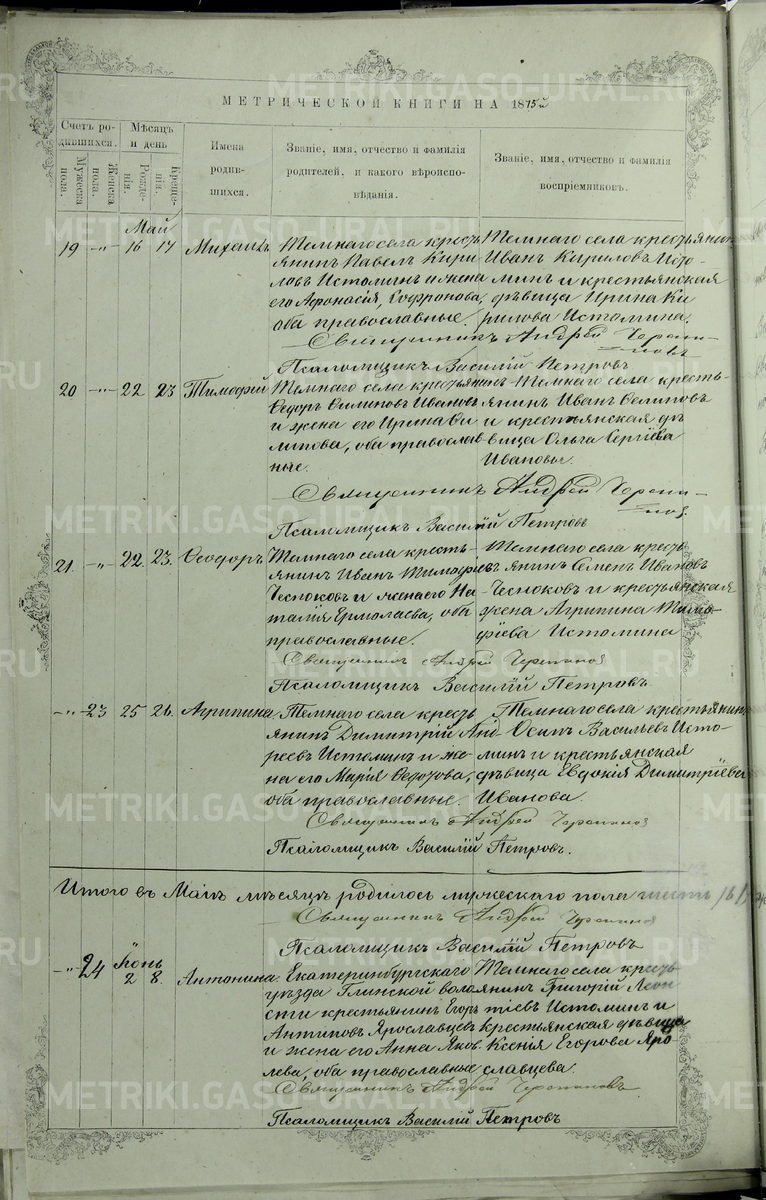 МЕТРИЧЕСКОЙ КНИГИ НА 1875й
Счетъ ро-
дившихся.
Мужеска
пола.
Женска
пола.
Мѣсяцъ
и день
Рожде-
нія.
Креще-
нія.
Имена
родив-
шихся.
Званіе, имя, отчество и фамилія
родителей, и какого вѣроиспо-
вѣданія.
Званіе, имя, отчество и фамилія
воспріемниковъ.
Май
19 -„- 16 17 Михаилъ
Темнаго села кресть
янинъ Павелъ Кири
ловъ Истоминъ и жена
его Афонасія Софронова,
оба православные.
Темнаго села крестьянин
Иванъ Кириловъ Исто-
минъ и крестьянская
дѣвица Ирина Ки
рилова Истомина.
Священникъ Андрей Черепа-
новъ
Псаломщикъ Василій Петровъ
20 -„- 22 23 Тимофей
Темнаго села крестьянинъ
Федоръ Филиповъ Ивановъ
и жена его Ирина Фи
липова, оба православ
ные.
Темнаго села кресть-
янинъ Иванъ Филиповъ
и крестьянская дѣ
вица Ольга Сергіева
Иванова.
Священникъ Андрей Черепа-
новъ
Псаломщикъ Василій Петровъ
21. -„- 22. 23. Феодоръ
Темнаго села кресть-
янинъ Иванъ Тимофѣевъ
Чесноковъ и жена его На
талія Ермолаева, оба
православные.
Темнаго села кресть
янинъ Семенъ Ивановъ
Чесноковъ и крестьянская
жена Агрипина Тимо-
фѣева Истомина
Священникъ Андрей Черепановъ
Псаломщикъ Василій Петровъ
-„- 23 25 26. Агрипина.
Темнаго села кресть
янинъ Димитрій Анд
реевъ Истоминъ и же-
на его Марія Федотова,
оба православные.
Темнаго села крестьянинъ
Осипъ Васильевъ Исто-
минъ и крестьянская
дѣвица Евдокія Димитріева
Иванова.
Священникъ Андрей Черепановъ
Псаломщикъ Василій Петровъ.
Итого въ Маѣ мѣсяцѣ родилось мужескаго пола шесть /6/
Священникъ Андрей Черепановъ
Псаломщикъ Василій Петровъ
Іюнь
-„- 24 2 8. Антонина.
Екатеринбургскаго
уѣзда Глинской воло
сти крестьянинъ Егоръ
Антиповъ Ярославцевъ
и жена его Анна Яков
лева, оба православные
Темнаго села кресть
янинъ Григорій Леон
тіевъ Истоминъ и
крестьянская дѣвица
Ксенія Егорова Яро
славцева.
Священникъ Андрей Черепановъ
Псаломщикъ Василій Петровъ
METRIKI.GASO-URAL.RU